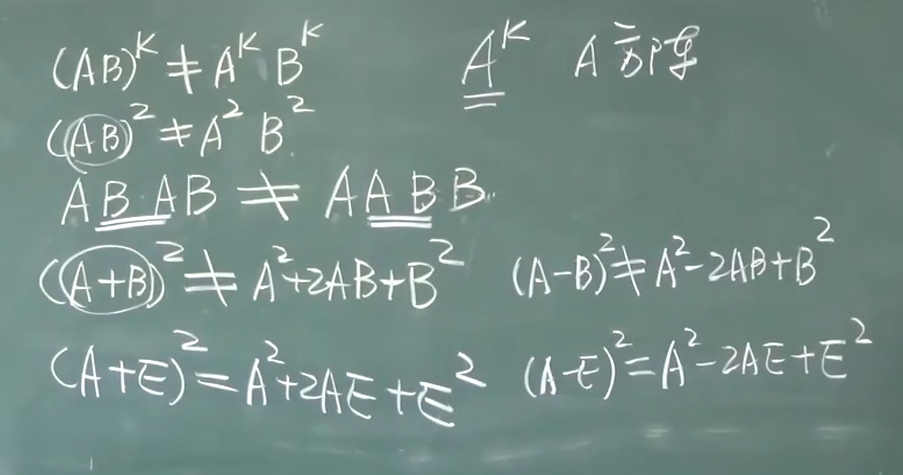 (AB)^K ≠ A^K B^K    A^K    A 方阵
(AB)^2 ≠ A^2 B^2.
AB·AB ≠ AABB.
(A+B)^2 ≠ A^2+2AB+B^2    (A-B)^2 ≠ A^2-2AB+B^2
(A+E)^2 = A^2+2AE+E^2    (A-E)^2 = A^2-2AE+E^2